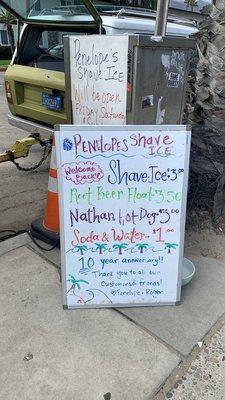 Penelope's
Shave ICE
Will be open
FRIDAY
PENELOPES Shave
ICE
Welcome
Back!!
Shave ICE $3.00
Root Beer Float $3.50
Nathan Hot Dog $3.00
Soda & Water $1.00
10 year anniversary!!
Thank you to all our
Customers & friends!
Penelope & Roger